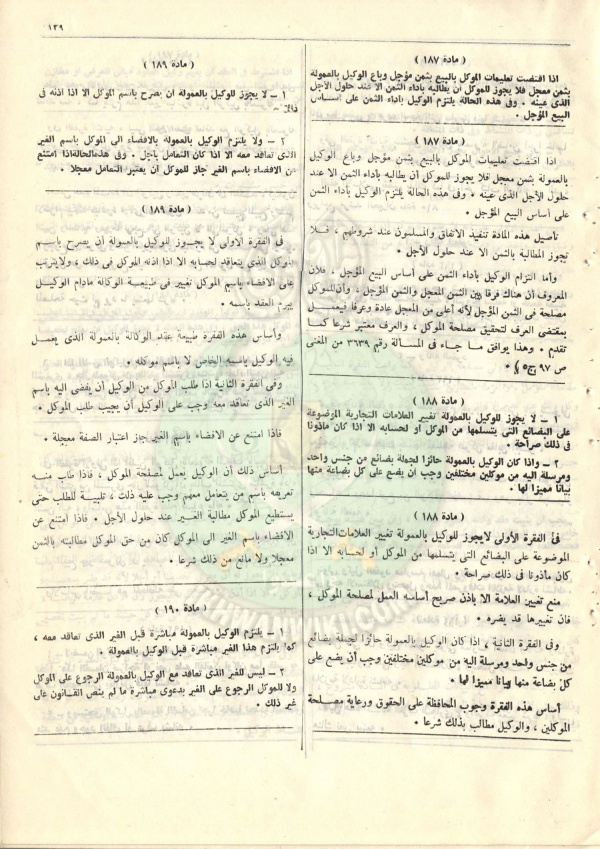 ١٣٩
( مادة ١٨٧ )
اذا اقتضت تعليمات الموكل بالبيع بثمن مؤجل وباع الوكيل بالعمولة
بثمن معجل فلا يجوز للموكل أن يطالبه بأداء الثمن الا عند حلول الأجل
الذى عينه . وفى هذه الحالة يلتزم الوكيل بأداء الثمن على أساس
البيع المؤجل .
( مادة ١٨٧ )
اذا اقتضت تعليمات الموكل بالبيع بثمن مؤجل وباع الوكيل
بالعمولة بثمن معجل فلا يجوز للموكل أن يطالبه بأداء الثمن الا عند
حلول الأجل الذى عينه . وفى هذه الحالة يلتزم الوكيل بأداء الثمن
على أساس البيع المؤجل .
تأصيل هذه المادة تنفيذ الاتفاق والمسلمون عند شروطهم ، فلا
تجوز المطالبة بالثمن الا عند حلول الأجل .
وأما التزام الوكيل بأداء الثمن على أساس البيع المؤجل ، فلأن
المعروف أن هناك فرقا بين الثمن المعجل والثمن المؤجل ، وأن للموكل
مصلحة فى الثمن المؤجل لأنه أعلى من المعجل عادة وعرفا فيعمل
بمقتضى العرف لتحقيق مصلحة الموكل ، والعرف معتبر شرعا كما
تقدم . وهذا يوافق ما جاء فى المسألة رقم ٣٦٣٩ من المغنى
ص ٩٧ ج٥ .
( مادة ١٨٨ )
١ – لا يجوز للوكيل بالعمولة تغيير العلامات التجارية الموضوعة
على البضائع التى يتسلمها من الموكل أو لحسابه الا اذا كان مأذونا
فى ذلك صراحة .
٢ – واذا كان الوكيل بالعمولة حائزا لجملة بضائع من جنس واحد
ومرسلة اليه من موكلين مختلفين وجب أن يضع على كل بضاعة منها
بيانا مميزا لها .
( مادة ١٨٨ )
فى الفقرة الأولى لايجوز للوكيل بالعمولة تغيير العلامات التجارية
الموضوعة على البضائع التى يتسلمها من الموكل أو لحسابه الا اذا
كان مأذونا فى ذلك صراحة .
منع تغيير العلامة الا باذن صريح أساسه العمل لمصلحة الموكل ،
فان تغييرها قد يضره .
وفى الفقرة الثانية ، اذا كان الوكيل بالعمولة حائزا لجملة بضائع
من جنس واحد ومرسلة اليه من موكلين مختلفين وجب أن يضع على
كل بضاعة منها بيانا مميزا لها .
أساس هذه الفقرة وجوب المحافظة على الحقوق ورعاية مصلحة
الموكلين ، والوكيل مطالب بذلك شرعا .
( مادة ١٨٩ )
١ – لا يجوز للوكيل بالعمولة ان يصرح باسم الموكل الا اذا اذنه فى
ذلك .
٢ – ولا يلتزم الوكيل بالعمولة بالافضاء الى الموكل باسم الغير
الذى تعاقد معه الا اذا كان التعامل بأجل . وفى هذه الحالة اذا امتنع
عن الافضاء باسم الغير جاز للموكل أن يعتبر التعامل معجلا .
( مادة ١٨٩ )
فى الفقرة الأولى لا يجوز للوكيل بالعمولة أن يصرح باسم
الموكل الذى يتعاقد لحسابه الا اذا اذنه الموكل فى ذلك ، ولا يترتب
على الافضاء باسم الموكل تغيير فى طبيعة الوكالة مادام الوكيل
يبرم العقد باسمه .
وأساس هذه الفقرة طبيعة عقد الوكالة بالعمولة الذى يعمل
فيه الوكيل باسمه الخاص لا باسم موكله .
وفى الفقرة الثانية اذا طلب الموكل من الوكيل أن يفضى اليه باسم
الغير الذى تعاقد معه وجب على الوكيل أن يجيب طلب الموكل .
فاذا امتنع عن الافضاء باسم الغير جاز اعتبار الصفة معجلة .
أساس ذلك أن الوكيل يعمل لمصلحة الموكل ، فاذا طلب منه
تعريفه باسم من يتعامل معهم وجب عليه ذلك ، تلبية للطلب حتى
يستطيع الموكل مطالبة الغير عند حلول الأجل . فاذا امتنع عن
الافضاء باسم الغير الى الموكل كان من حق الموكل مطالبته بالثمن
معجلا ولا مانع من ذلك شرعا .
( مادة ١٩٠ )
١ – يلتزم الوكيل بالعمولة مباشرة قبل الغير الذى تعاقد معه ،
كما يلتزم هذا الغير مباشرة قبل الوكيل بالعمولة .
٢ – ليس للغير الذى تعاقد مع الوكيل بالعمولة الرجوع على الموكل
ولا للموكل الرجوع على الغير بدعوى مباشرة ما لم ينص القانون على
غير ذلك .